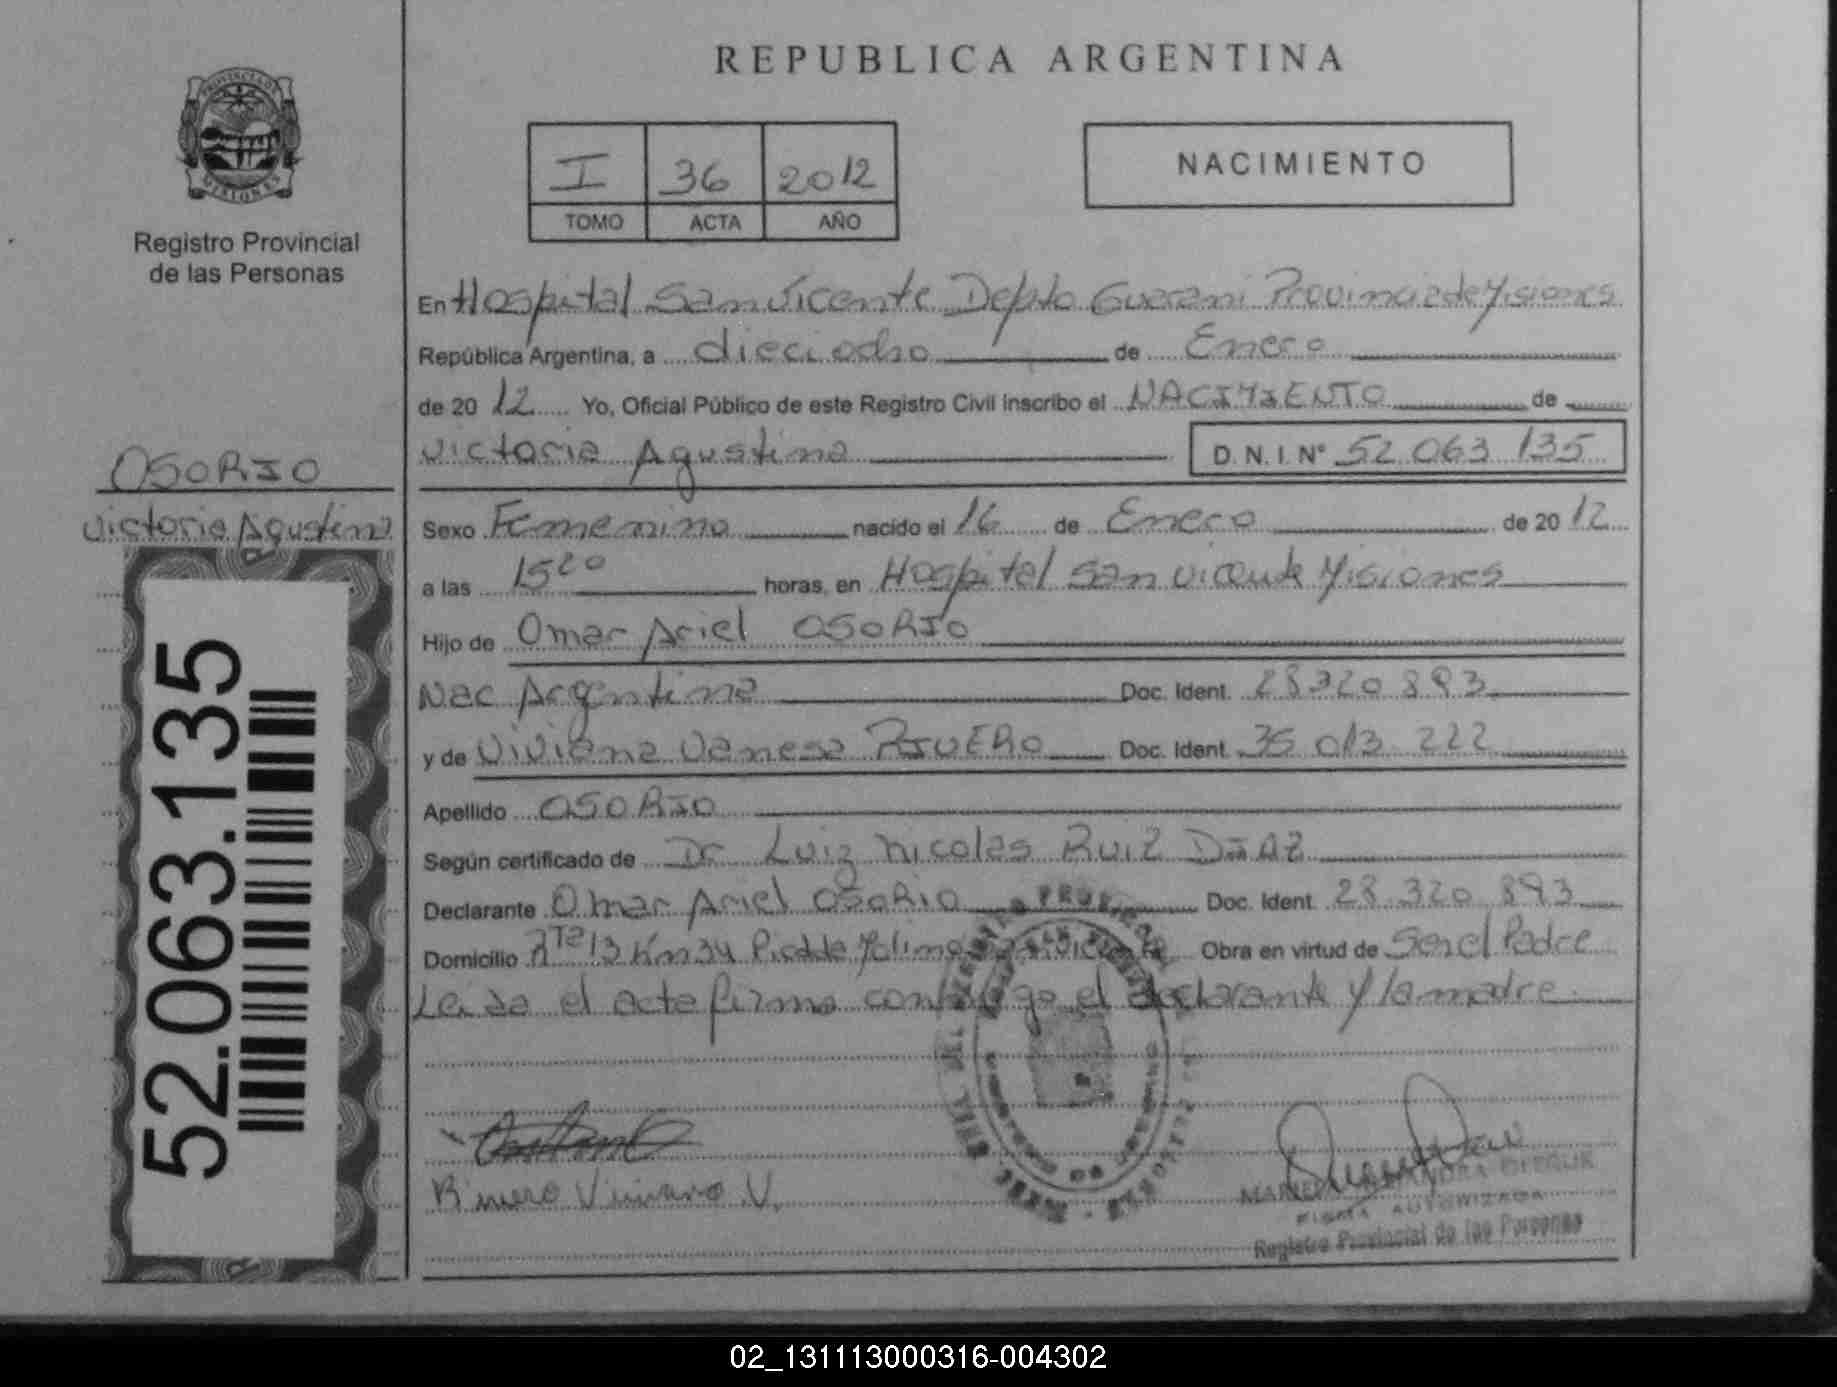 REPUBLICA ARGENTINA
PROVINCIA DE
MISIONES
Registro Provincial
de las Personas
I 36 2012
TOMO ACTA AÑO
NACIMIENTO
En Hospital San Vicente Depto Guarani Provincia de Misiones
República Argentina, a dieciocho de Enero
de 2012 Yo, Oficial Público de este Registro Civil Inscribo el NACIMIENTO de
Victoria Agustina D.N.I. N° 52 063 135
OSORIO
Victoria Agustina
52.063.135
Sexo Femenino nacido el 16 de Enero de 2012
a las 15 20 horas, en Hospital San Vicente Misiones
Hijo de Omar Ariel OSORIO
Nac Argentina Doc. Ident. 28 320 893
y de Viviana Vanesa RIVERO Doc. Ident. 35 013 222
Apellido OSORIO
Según certificado de Dr Luiz Nicolas Ruiz DIAZ
Declarante Omar Ariel OSORIO Doc. Ident. 28 320 893
Domicilio Rta 13 Km 34 Obra en virtud de Ser el Padre
Leida el acta firma conmigo el declarante y la madre
Rivero Viviana V.
FIRMA AUTORIZADA
Registro Provincial de las Personas
02_131113000316-004302